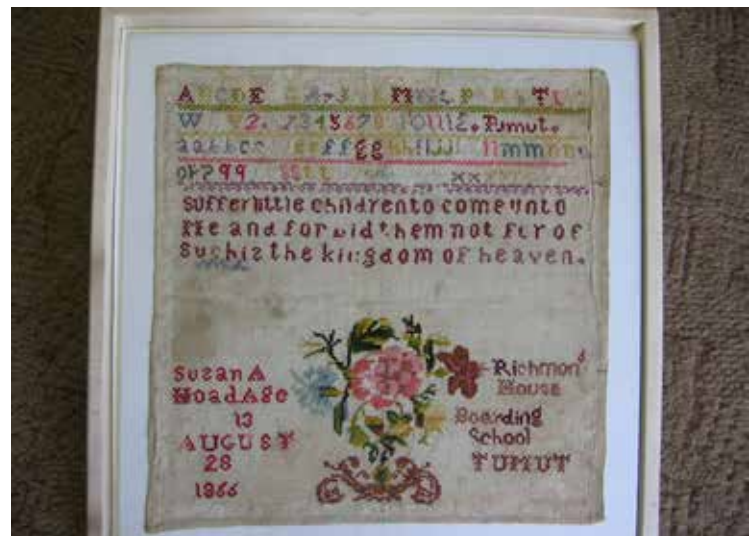 ABCDE
W 234567 101112. Tumut.
aabbcc ffgg
99
suffer little children to come unto
Me and forbid them not for of
Such is the kingdom of heaven.
Susan A
Hoad Age
13
AUGUST
28
1866
Richmond
House
Boarding
School
TUMUT